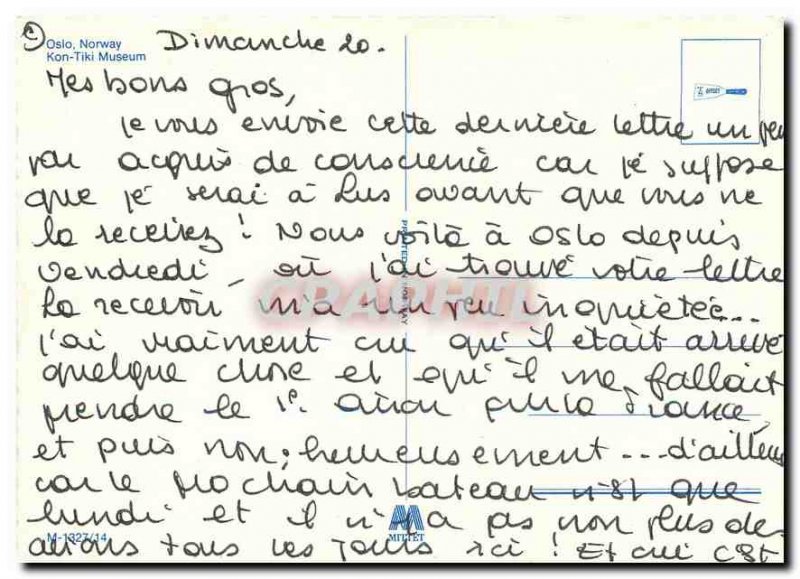 Oslo, Norway
Kon-Tiki Museum
Dimanche 20.
Mes bons gros,
je vous envoie cette dernière lettre un peu
par acquis de conscience car je suppose
que je serai à Lus avant que vous ne
la receviez ! Nous voilà à Oslo depuis
vendredi, où j'ai trouvé votre lettre
La recevoir m'a un peu inquiétée...
j'ai vraiment cru qu'il était arrivé
quelque chose et qu'il me fallait
prendre le 1er avion pour la France,
et puis non, heureusement... d'ailleurs
car le prochain bateau n'est que
lundi et il n'y a pas non plus de-
avions tous les jours ici ! Et qui c'est
M-1327/14
MITTET
GRAPHTI